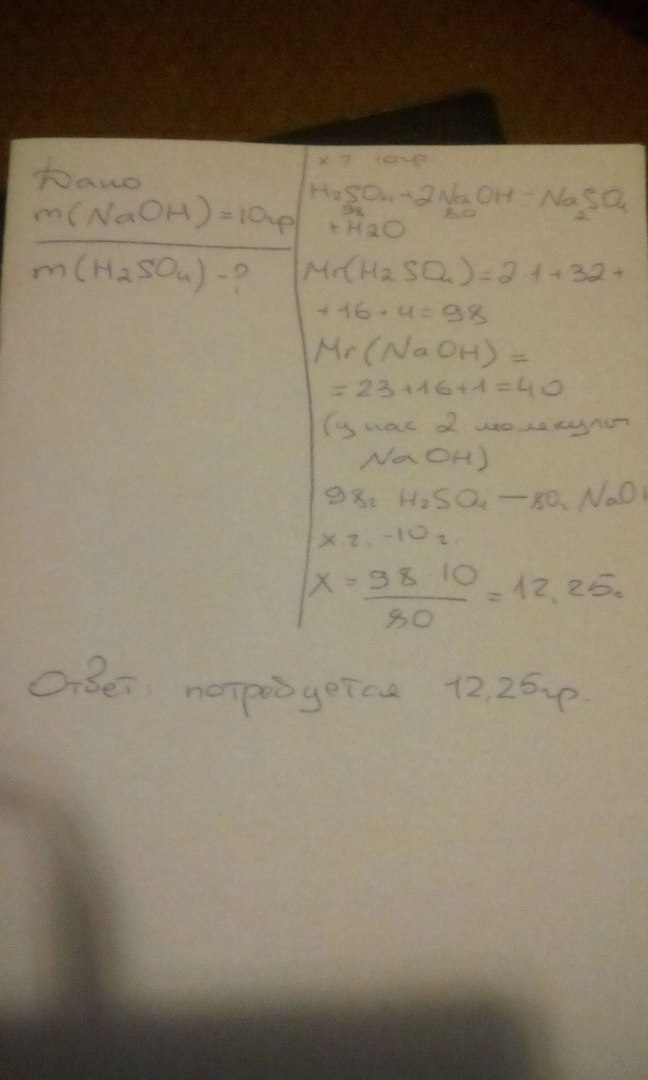 Дано
m(NaOH)=10гр
m(H₂SO₄)-?
x г 10гр
H₂SO₄+2NaOH-Na₂SO₄
98 80
+H₂O
Mr(H₂SO₄)=2·1+32+
+16·4=98
Mr(NaOH)=
=23+16+1=40
(у нас 2 молекулы
NaOH)
98г H₂SO₄—80г NaOH
x.г. -10г.
X=98·10/80=12,25г
Ответ: потребуется 12,25гр.